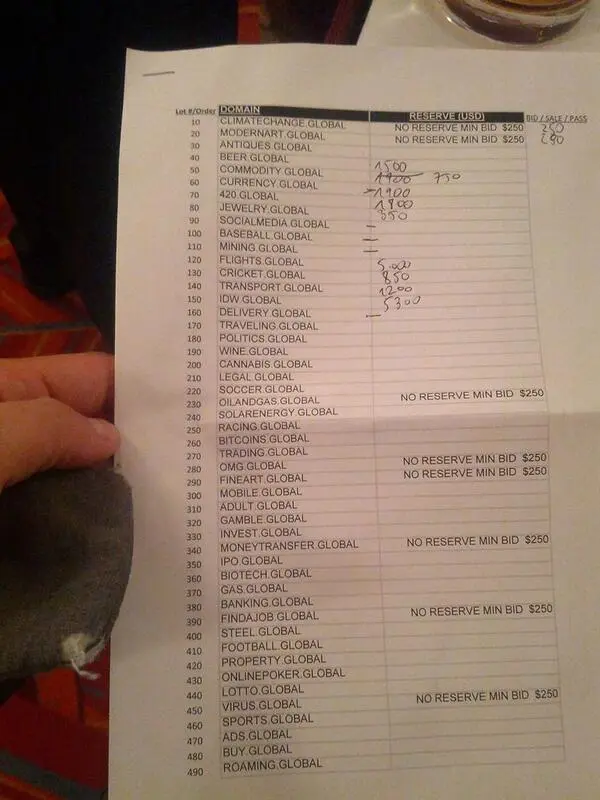 Lot #/Order DOMAIN RESERVE (USD) BID / SALE / PASS
10 CLIMATECHANGE.GLOBAL NO RESERVE MIN BID $250 250
20 MODERNART.GLOBAL NO RESERVE MIN BID $250 250
30 ANTIQUES.GLOBAL
40 BEER.GLOBAL
50 COMMODITY.GLOBAL 1500
60 CURRENCY.GLOBAL 1900 750
70 420.GLOBAL 1900
80 JEWELRY.GLOBAL 1900
90 SOCIALMEDIA.GLOBAL 550
100 BASEBALL.GLOBAL –
110 MINING.GLOBAL –
120 FLIGHTS.GLOBAL 5000
130 CRICKET.GLOBAL 850
140 TRANSPORT.GLOBAL 1200
150 IDW.GLOBAL 5300
160 DELIVERY.GLOBAL –
170 TRAVELING.GLOBAL
180 POLITICS.GLOBAL
190 WINE.GLOBAL
200 CANNABIS.GLOBAL
210 LEGAL.GLOBAL
220 SOCCER.GLOBAL
230 OILANDGAS.GLOBAL NO RESERVE MIN BID $250
240 SOLARENERGY.GLOBAL
250 RACING.GLOBAL
260 BITCOINS.GLOBAL
270 TRADING.GLOBAL
280 OMG.GLOBAL NO RESERVE MIN BID $250
290 FINEART.GLOBAL NO RESERVE MIN BID $250
300 MOBILE.GLOBAL
310 ADULT.GLOBAL
320 GAMBLE.GLOBAL
330 INVEST.GLOBAL
340 MONEYTRANSFER.GLOBAL NO RESERVE MIN BID $250
350 IPO.GLOBAL
360 BIOTECH.GLOBAL
370 GAS.GLOBAL
380 BANKING.GLOBAL
390 FINDAJOB.GLOBAL NO RESERVE MIN BID $250
400 STEEL.GLOBAL
410 FOOTBALL.GLOBAL
420 PROPERTY.GLOBAL
430 ONLINEPOKER.GLOBAL
440 LOTTO.GLOBAL
450 VIRUS.GLOBAL NO RESERVE MIN BID $250
460 SPORTS.GLOBAL
470 ADS.GLOBAL
480 BUY.GLOBAL
490 ROAMING.GLOBAL